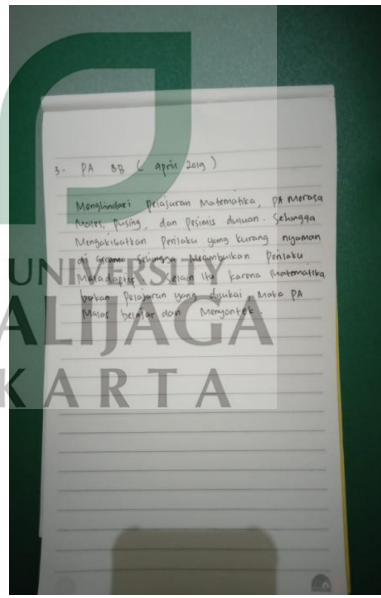 3. PA BB ( April 2019 )
Menghindari Pelajaran Matematika, PA Merasa
Males, Pusing, dan Pesimis duluan. Sehingga
Mengakibatkan Perilaku yang kurang nyaman
di asrama sehingga Menimbulkan Perilaku
Maladaptif. Selain itu karena Matematika
bukan Pelajaran yang disukai Maka PA
Malas belajar dan Menyontek.
UNIVERSITY
ALIJAGA
KARTA